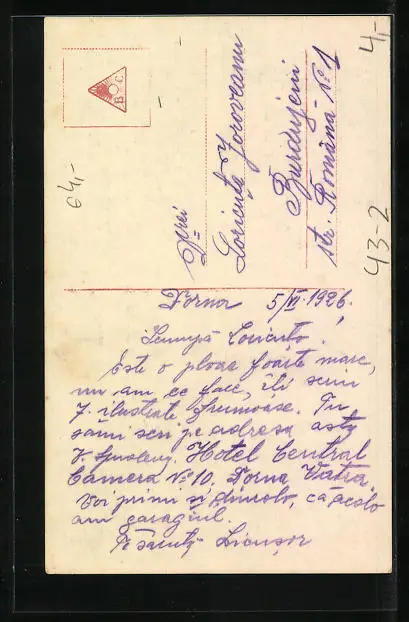 B C
64,-
4,-
43-2
D-rei
Loricuța Joroveanu
Burdujeni
str. Română No 1
Dorna 5/VI 1926.
Scumpă Loricuto.
Este o ploae foarte mare,
nu am ce face, îți scriu
7 ilustrate frumoase. Tu
sămi scri pe adresa
Hotel Central
Camera No 10. Dorna Vatra.
Voi primi și dincolo, ca acolo
am
Te sărută Licușor